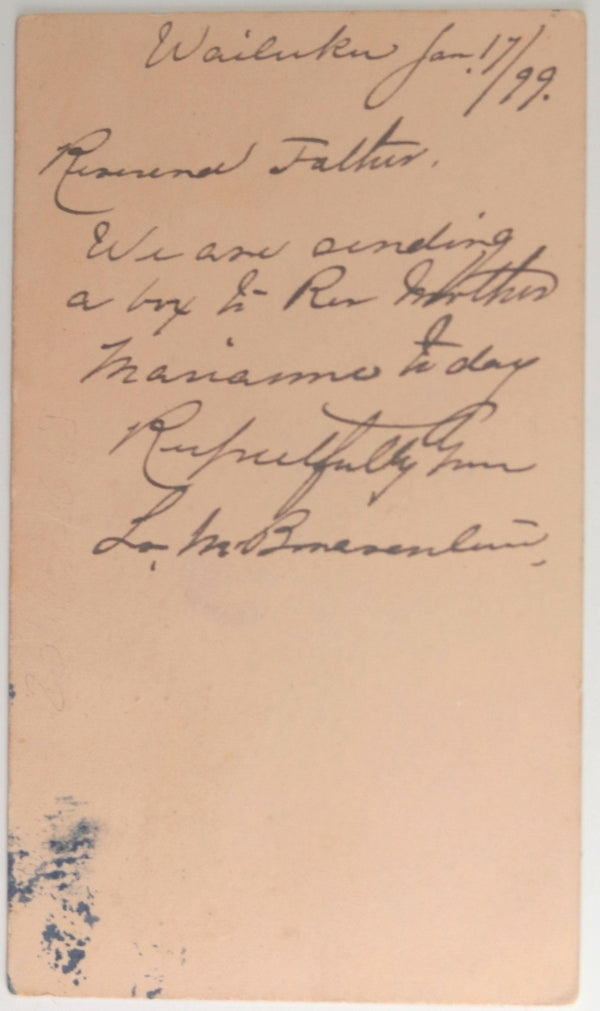 Wailuku Jan. 17/99.
Reverend Father.
We are sending
a box to Rev Mother
Marianne to day
Respectfully Your
Sr. M. Bonaventure,